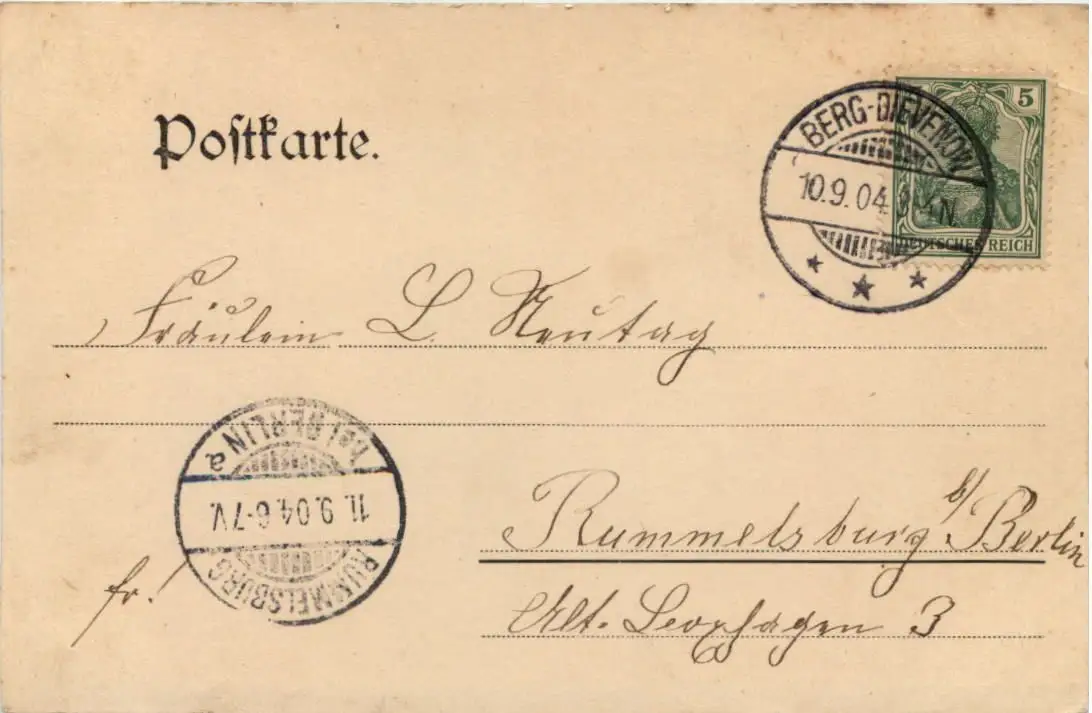 Postkarte.
5
DEUTSCHES REICH
BERG-DIEVENOW
10.9.04. N.
Fräulein L. Neutag
bei BERLIN a
11.9.04. 6-7 V.
RUMMELSBURG
Rummelsburg b/ Berlin
fr!
Alt. 3